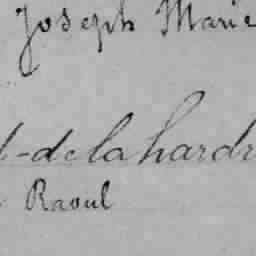 Joseph Marie
-delahardr
Raoul